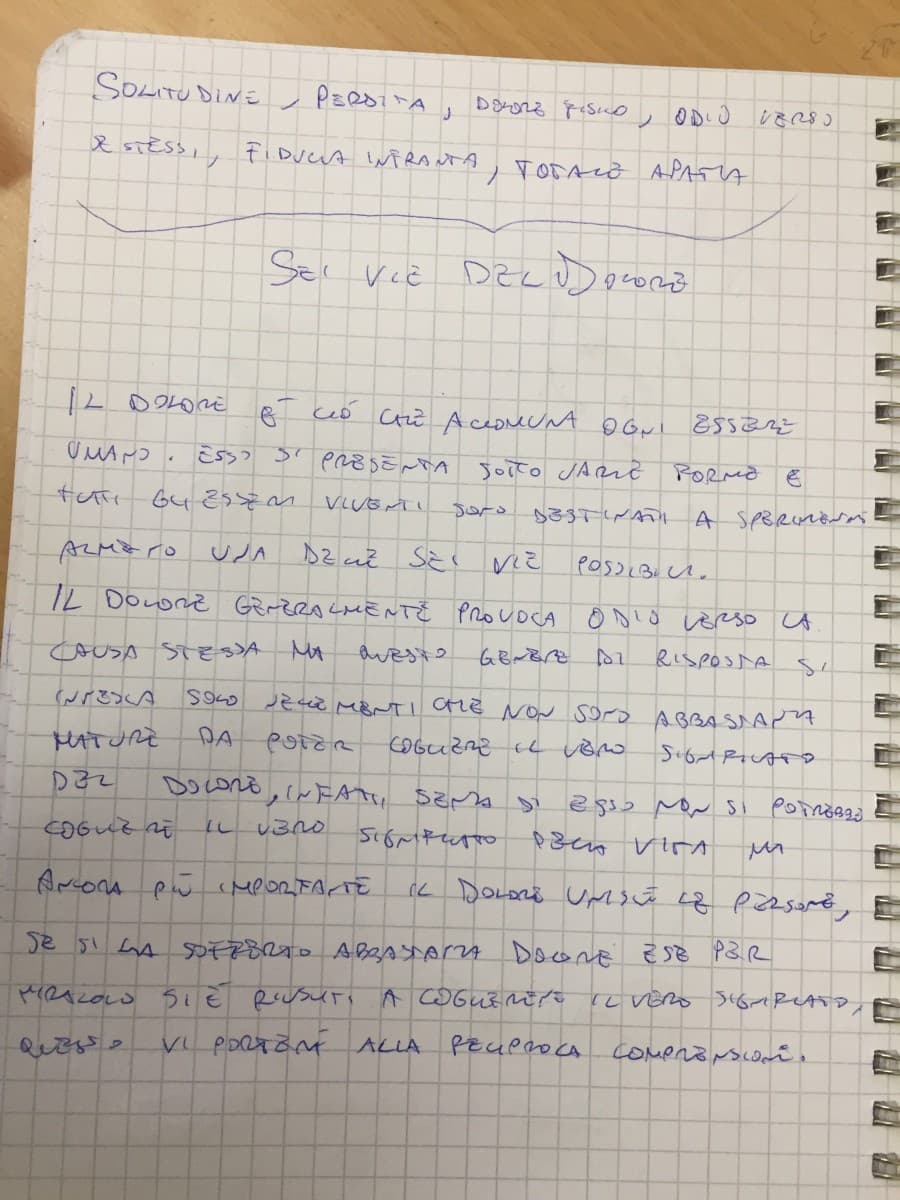 SOLITUDINE, PERDITA, DOLORE FISICO, ODIO VERSO
SE STESSI, FIDUCIA INFRANTA, TOTALE APATIA
SEI VIE DEL DOLORE
IL DOLORE È CIÒ CHE ACCOMUNA OGNI ESSERE
UMANO. ESSO SI PRESENTA SOTTO VARIE FORME E
TUTTI GLI ESSERI VIVENTI SONO DESTINATI A SPERIMENTARE
ALMENO UNA DELLE SEI VIE POSSIBILI.
IL DOLORE GENERALMENTE PROVOCA ODIO VERSO LA
CAUSA STESSA MA QUESTO GENERE DI RISPOSTA SI
INNESCA SOLO NELLE MENTI CHE NON SONO ABBASTANZA
MATURE DA POTER COGLIERE IL VERO SIGNIFICATO
DEL DOLORE, INFATTI SENZA DI ESSO NON SI POTREBBE
COGLIERE IL VERO SIGNIFICATO DELLA VITA MA
ANCORA PIÙ IMPORTANTE IL DOLORE UNISCE LE PERSONE,
SE SI HA SOFFERTO ABBASTANZA DOLORE E SE PER
MIRACOLO SI È RIUSCITI A COGLIERNE IL VERO SIGNIFICATO,
QUESTO VI PORTERÀ ALLA RECIPROCA COMPRENSIONE.